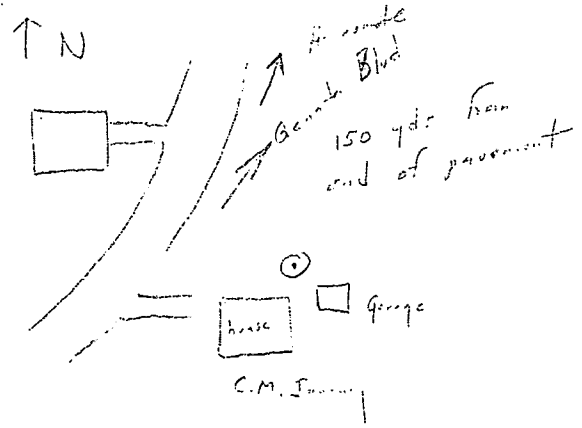 N
Blvd
150 yds from
end of pavement
Garage
house
C.M.